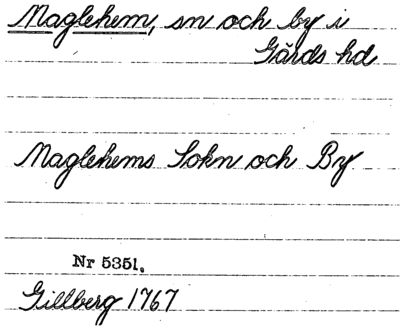 Maglehem, sn och by i
Gärds hd
Maglehems Sokn och By
Nr 5351.
Gillberg 1767